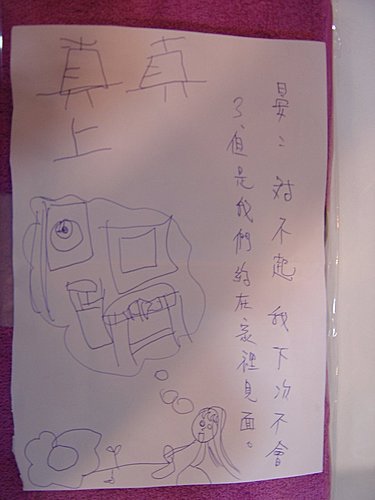 晏:對不起我下次不會
了,但是我們約在家裡見面。
真真
上